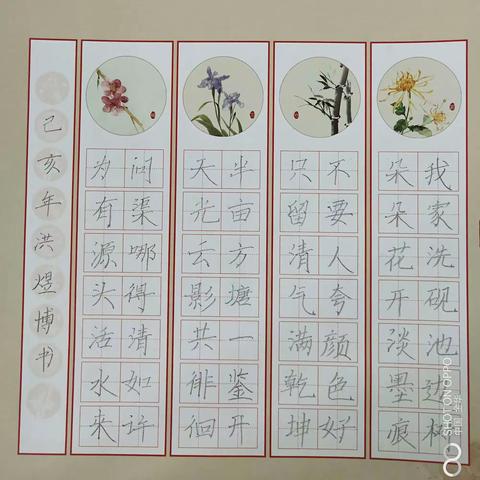 我家洗砚池边树
朵朵花开淡墨痕
不要人夸颜色好
只留清气满乾坤
半亩方塘一鉴开
天光云影共徘徊
问渠哪得清如许
为有源头活水来
己亥年洪煜博书
SHOT ON OPPO